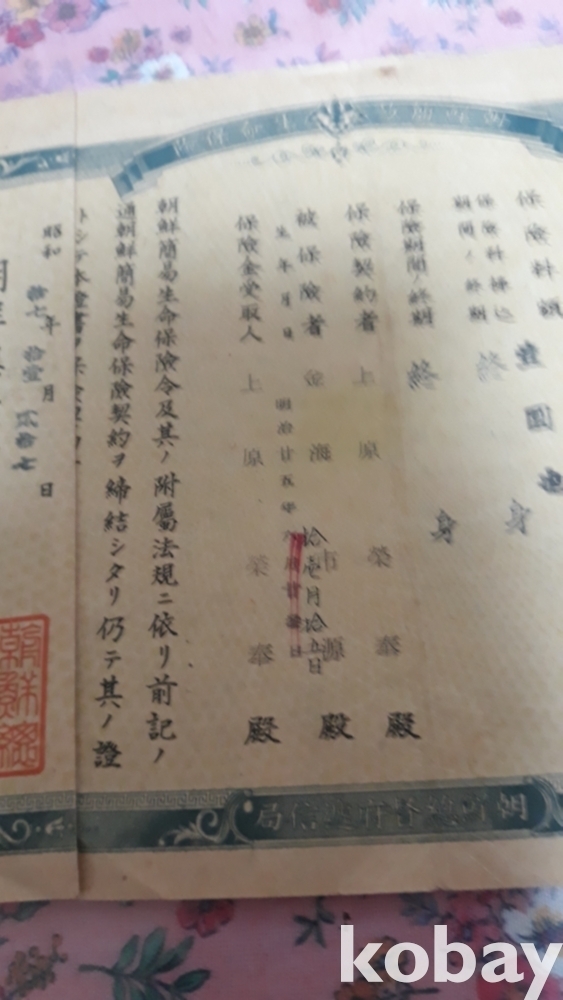 保險料額 壹圓也
保險料拂込期間ノ終期 終身
保險期間ノ終期 終身
保險契約者 上原榮奉殿
被保險者 金海 源殿
生年月日 明治廿五年
拾壱月拾五日
保險金受取人 上原榮奉殿
朝鮮簡易生命保險令及其ノ附屬法規ニ依リ前記ノ
通朝鮮簡易生命保險契約ヲ締結シタリ仍テ其ノ證
昭和拾七年拾壹月貳拾七日
朝鮮總
朝鮮總督府遞信局
kobay